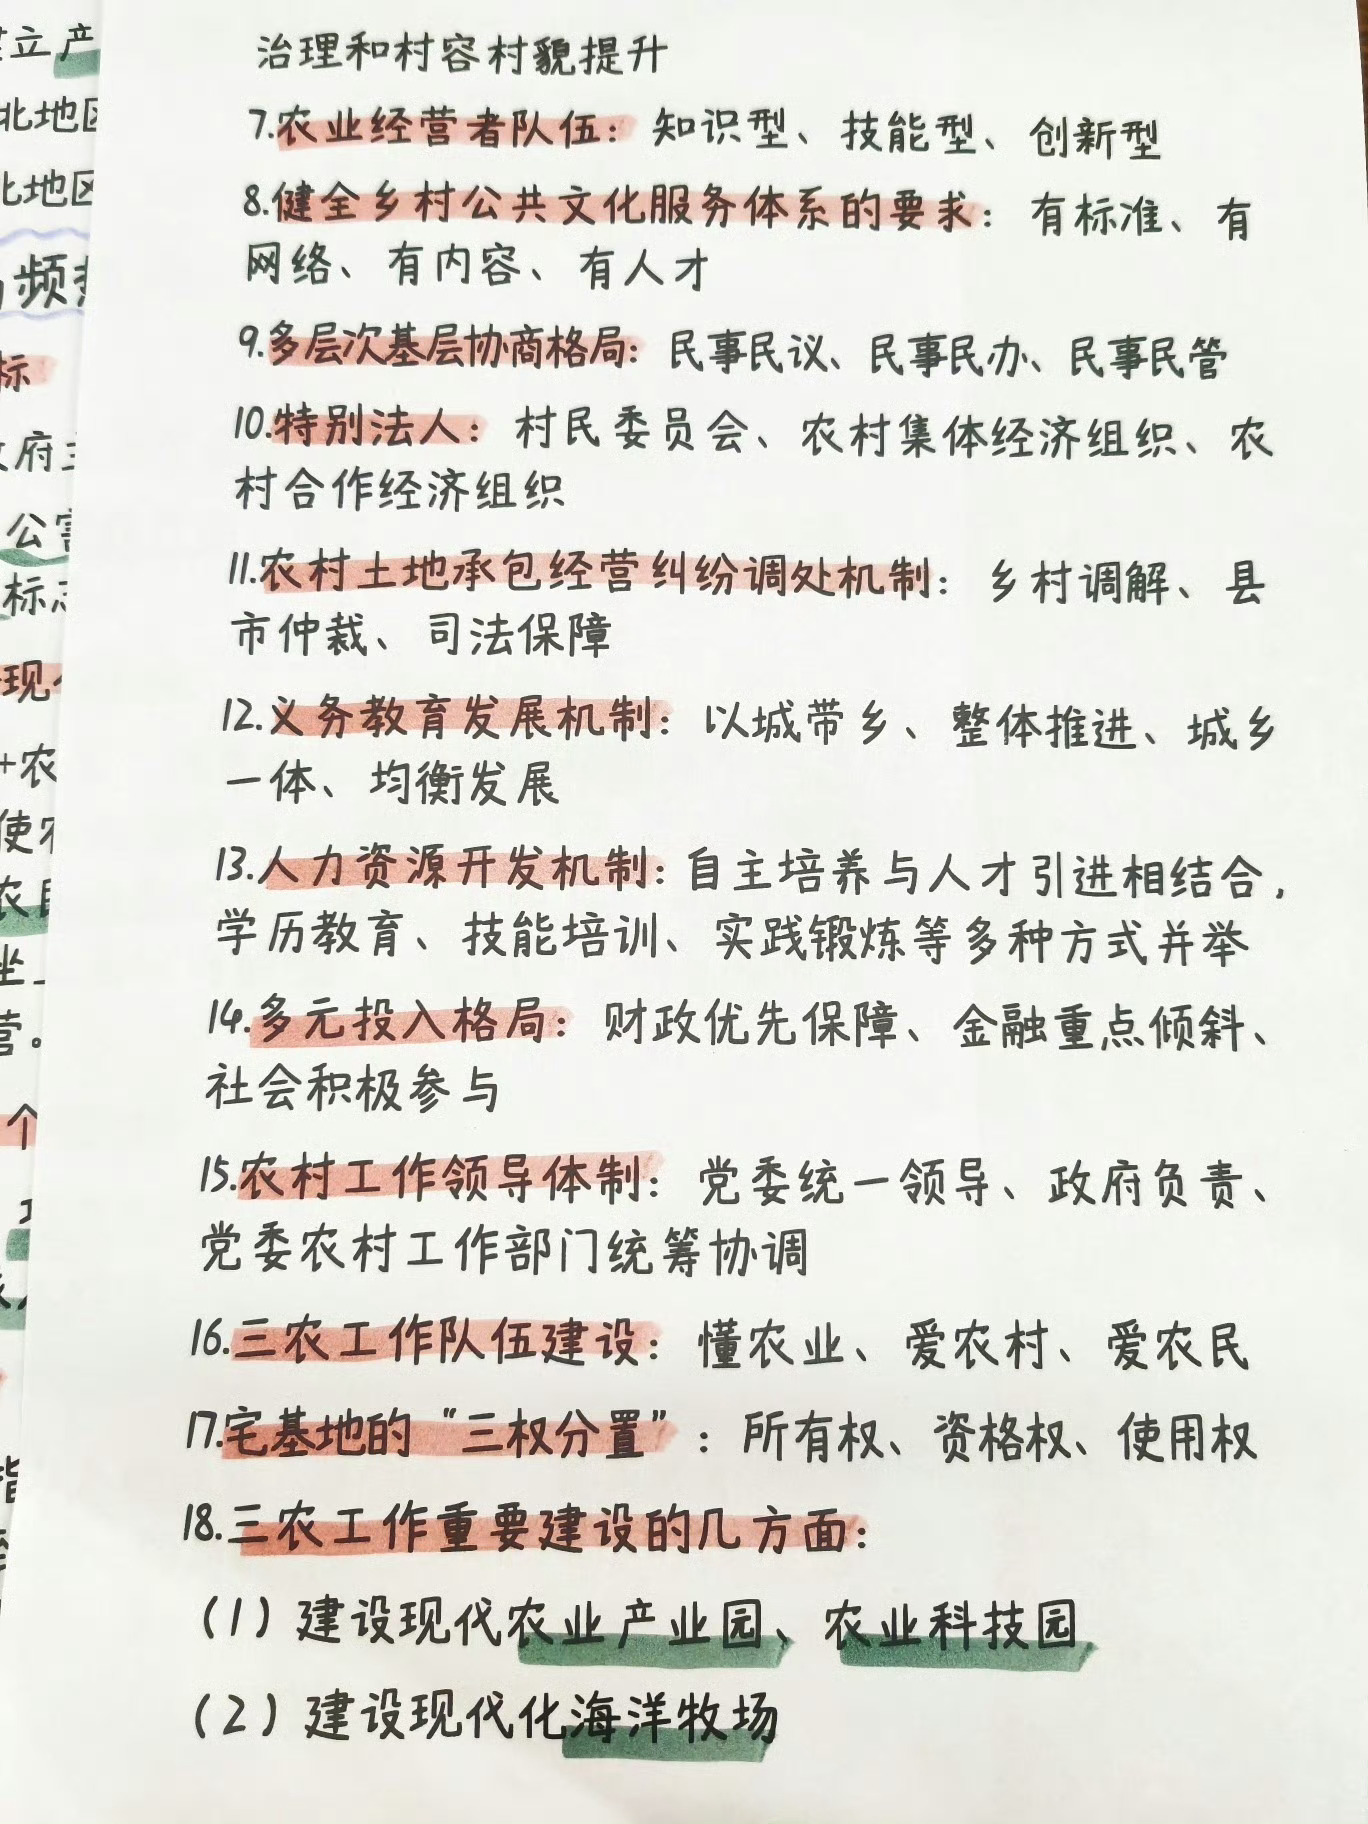 治理和村容村貌提升
7.农业经营者队伍：知识型、技能型、创新型
8.健全乡村公共文化服务体系的要求：有标准、有
网络、有内容、有人才
9.多层次基层协商格局：民事民议、民事民办、民事民管
10.特别法人：村民委员会、农村集体经济组织、农
村合作经济组织
11.农村土地承包经营纠纷调处机制：乡村调解、县
市仲裁、司法保障
12.义务教育发展机制：以城带乡、整体推进、城乡
一体、均衡发展
13.人力资源开发机制：自主培养与人才引进相结合，
学历教育、技能培训、实践锻炼等多种方式并举
14.多元投入格局：财政优先保障、金融重点倾斜、
社会积极参与
15.农村工作领导体制：党委统一领导、政府负责、
党委农村工作部门统筹协调
16.三农工作队伍建设：懂农业、爱农村、爱农民
17.宅基地的“三权分置”：所有权、资格权、使用权
18.三农工作重要建设的几方面：
（1）建设现代农业产业园、农业科技园
（2）建设现代化海洋牧场
立产
北地区
北地区
频
标
府
公害
标志
现
+农
使
农民
坐
营。
个